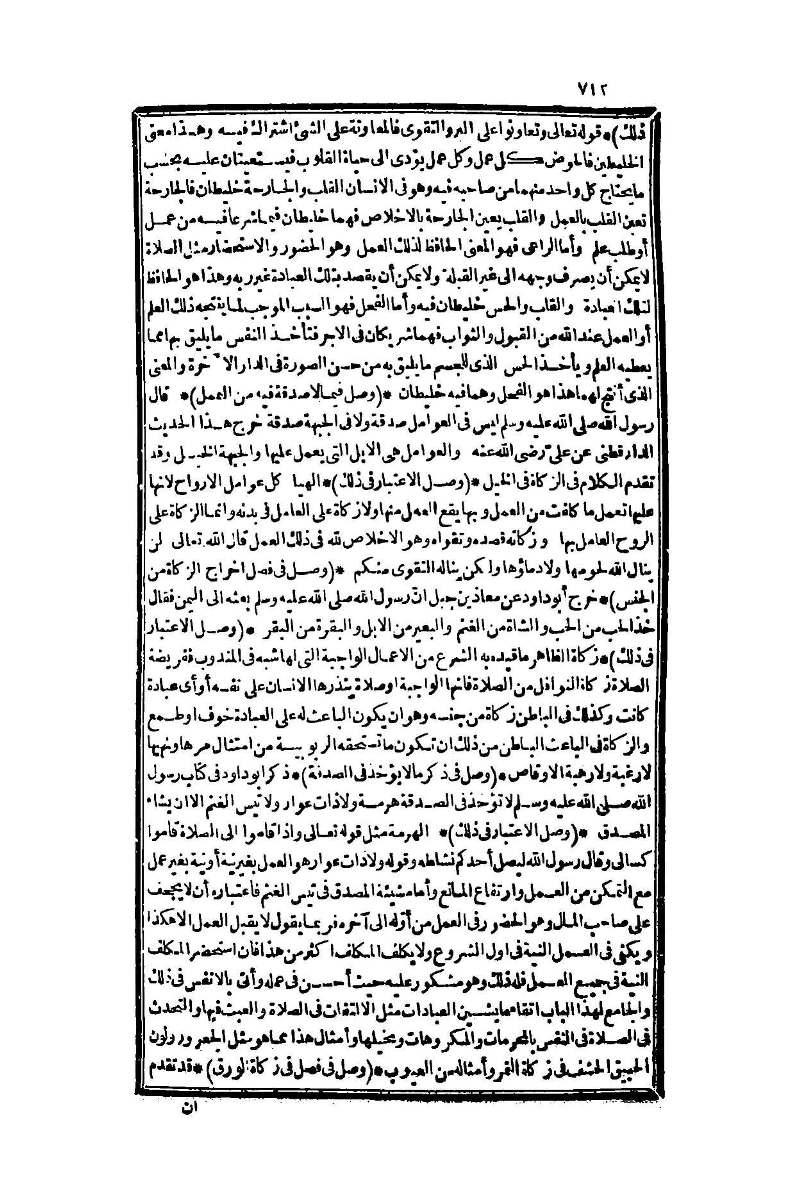 ٧١٢
ذلك)* قوله تعالى وتعاونوا على البر والتقوى فالمعاونة على الشئ اشتراك فيه وهذا معنى
الخليطين فالحوض كل عمل وكل عمل يؤدى الى حياة القلوب فيستعينان عليه بحسب
ما يحتاج كل واحد منهما من صاحبه فيه وهو فى الانسان القلب والجارحة خليطان فالجارحة
تعين القلب بالعمل والقلب يعين الجارحة بالاخلاص فهما خليطان فيما شرعا فيه من عمل
أو طلب علم وأما الراعى فهو المعنى الحافظ لذلك العمل وهو الحضور والاستحضار مثل الصلاة
لا يمكن أن يصرف وجهه الى غير القبلة ولا يمكن أن يقصد بتلك العبادة غير ربه وهذا هو الحافظ
لتلك العبادة والقلب والحس خليطان فيه وأما الفحل فهو السبب الموجب لما ينتجه ذلك العلم
أو العمل عند الله من القبول والثواب فهما شريكان فى الاجر فتأخذ النفس ما يليق بها مما
يعطيه العلم ويأخذ الحس الذى للجسم ما يليق به من حسن الصورة فى الدار الآخرة والمعنى
الذى أنتج لهما هذا هو الفحل وهما فيه خليطان *(وصل فيما لاصدقة فيه من العمل)* قال
رسول الله صلى الله عليه وسلم ليس فى العوامل صدقة ولا فى الجبهة صدقة خرج هذا الحديث
الدارقطنى عن على رضى الله عنه والعوامل هى الابل التى يعمل عليها والجبهة الخيل وقد
تقدم الكلام فى الزكاة فى الخيل *(وصل الاعتبار فى ذلك)* الهيا كل عوامل الارواح لانها
عليها تعمل ما كلفت من العمل وبها يقع العمل منها ولا زكاة على العامل فى بدنه وانما الزكاة على
الروح العامل بها وزكاته قصده وتقواه وهو الاخلاص لله فى ذلك العمل قال الله تعالى لن
ينال الله لحومها ولا دماؤها ولكن يناله التقوى منكم *(وصل فى فصل اخراج الزكاة من
الجنس)* خرج أبو داود عن معاذ بن جبل ان رسول الله صلى الله عليه وسلم بعثه الى اليمن فقال
خذ الحب من الحب والشاة من الغنم والبعير من الابل والبقرة من البقر *(وصل الاعتبار
فى ذلك)* زكاة الظاهر ما قيده به الشرع من الاعمال الواجبة التى لها شبه فى المندوب ففريضة
الصلاة زكاة النوافل من الصلاة فانها الواجبة او صلاة ينذرها الانسان على نفسه أو أى عبادة
كانت وكذلك فى الباطن زكاة من جنسه وهو ان يكون الباعث له على العبادة خوف او طمع
والزكاة فى الباعث الباطن من ذلك ان تكون ما تستحقه الربوبية من امتثال امرها ونهيها
لا رغبة ولا رهبة الا وقاص *(وصل فى ذكر مالا يؤخذ فى الصدقة)* ذكر ابو داود فى كتاب رسول
الله صلى الله عليه وسلم لا تؤخذ فى الصدقة هرمة ولا ذات عوار ولا تيس الغنم الا ان يشاء
المصدق *(وصل الاعتبار فى ذلك)* الهرمة مثل قوله تعالى واذا قاموا الى الصلاة قاموا
كسالى وقال رسول الله ليصل أحدكم نشاطه وقوله ولا ذات عوار هو العمل بغير نية أو نية بغير عمل
مع التمكن من العمل وارتفاع المانع وأما مشيئة المصدق فى تيس الغنم فاعتباره أن لا يجحف
على صاحب المال وهو الحضور فى العمل من أوله الى آخره فربما يقول لا يقبل العمل الا هكذا
ويكفى فى العمل النية فى اول الشروع ولا يكلف المكلف اكثر من هذا فان استحضر المكلف
النية فى جميع العمل فله ذلك وهو مشكور عليه حيث أحسن فى عمله وأتى بالانفس فى ذلك
والجامع لهذا الباب اتقاء ما يشين العبادات مثل الالتفات فى الصلاة والعبث فيها والتحدث
فى الصلاة فى النفس بالمحرمات والمكروهات وتخيلها وأمثال هذا مما هو مثل الجعرور ولون
الحبيق الحشف فى زكاة التمر وأمثاله من العيوب *(وصل فى فصل فى زكاة الورق)* قد تقدم
ان